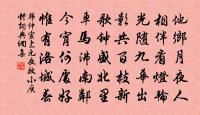 他鄉月夜人
相伴看燈輪
光隨九華出
影共百枝新
歌鐘盛北里
車馬沸南鄰
今宵何處好
惟有洛城春
韓仲宣上元夜效小庾
詞典網